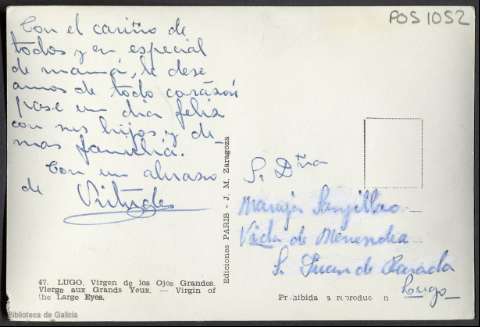 POS 1052
Con el cariño de
todos y en especial
de mamá, le dese
amos de todo corazón
pase un dia feliz
con sus hijos y de-
mas familia.
Con un abrazo
de Virtudes
Ediciones PARIS - J. M. Zaragoza
S. Dña
Maruja
Vda de Menendez
S. Juan de
Lugo
47. LUGO, Virgen de los Ojos Grandes
Vierge aux Grands Yeux. — Virgin of
the Large Eyes.
Prohibida a reproducción
Biblioteca de Galicia